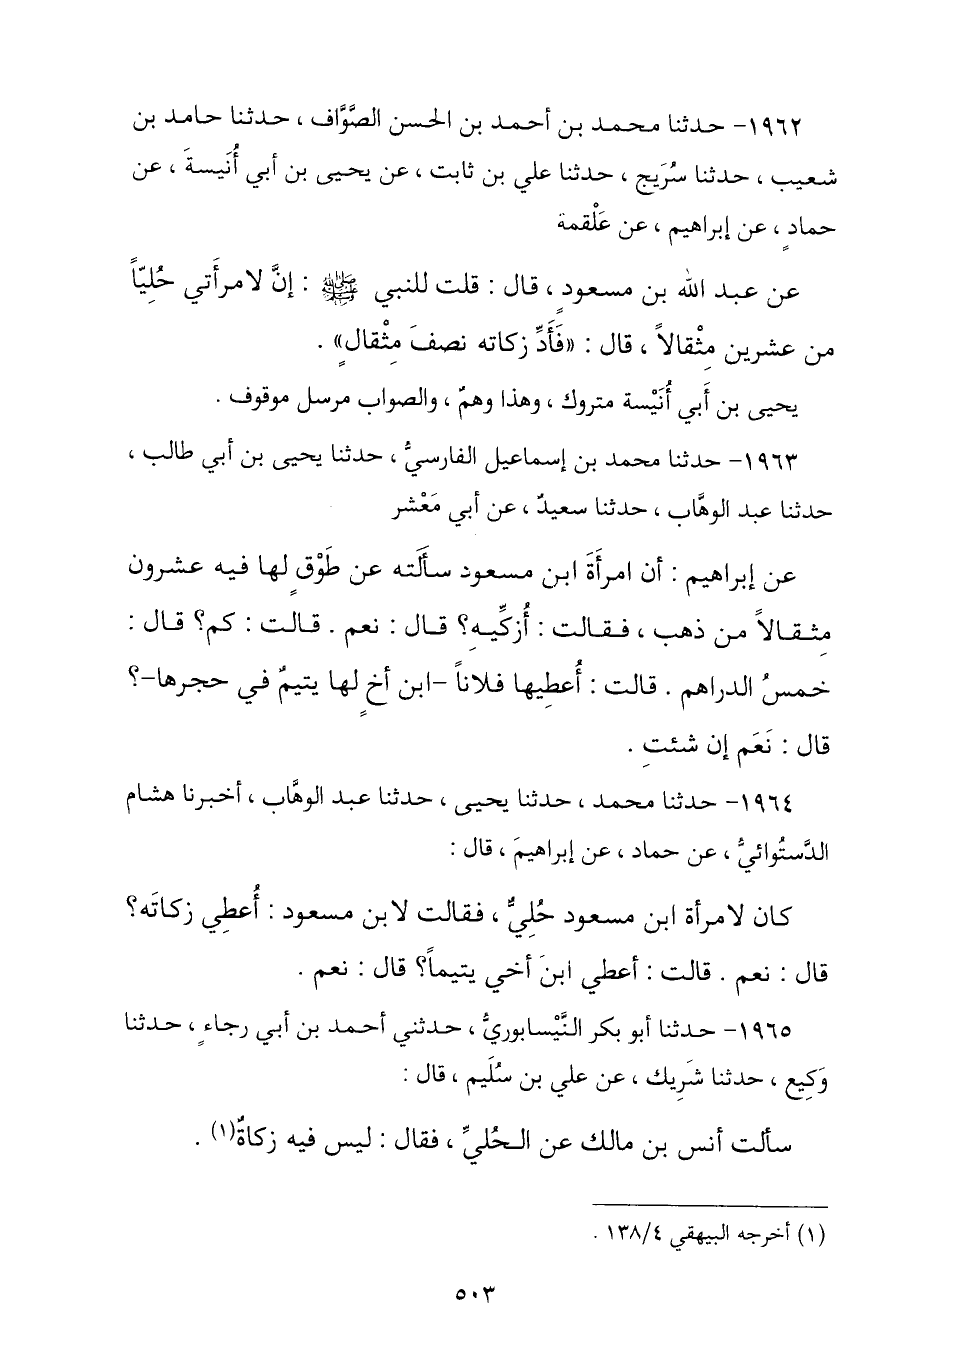 ١٩٦٢- حدثنا محمد بن أحمد بن الحسن الصَّوَّاف ، حدثنا حامد بن
شعيب ، حدثنا سُرَيج ، حدثنا علي بن ثابت ، عن يحيى بن أبي أُنَيسةَ ، عن
حمادٍ ، عن إبراهيم ، عن عَلْقمة
عن عبد الله بن مسعودٍ ، قال : قلت للنبي ﷺ : إنَّ لامرأَتي حُلِيّاً
من عشرين مِثْقالاً ، قال : «فَأَدِّ زكاته نصفَ مِثْقالٍ» .
يحيى بن أَبي أُنَيْسة متروك ، وهذا وهمٌ ، والصواب مرسل موقوف .
١٩٦٣- حدثنا محمد بن إسماعيل الفارسيُّ ، حدثنا يحيى بن أبي طالب ،
حدثنا عبد الوهَّاب ، حدثنا سعيدٌ ، عن أبي مَعْشر
عن إبراهيم : أن امرأَةَ ابن مسعود سأَلَته عن طَوْقٍ لها فيه عشرون
مِثـقـالاً من ذهب ، فـقـالت : أُزكِّيـهِ؟ قـال : نعم . قـالت : كم؟ قـال :
خمسُ الدراهم . قالت : أُعطِيها فلاناً -ابن أخٍ لها يتيمٌ في حجرها-؟
قال : نَعَم إن شئتِ .
١٩٦٤- حدثنا محمد ، حدثنا يحيى ، حدثنا عبد الوهَّاب ، أخبرنا هشام
الدَّستُوائيُّ ، عن حماد ، عن إبراهيمَ ، قال :
كان لامرأة ابن مسعود حُلِيٌّ ، فقالت لابن مسعود : أُعطِي زكاتَه؟
قال : نعم . قالت : أعطي ابنَ أخي يتيماً؟ قال : نعم .
١٩٦٥- حدثنا أبو بكر النَّيْسابوريُّ ، حدثني أحمد بن أبي رجاءٍ ، حدثنا
وَكِيع ، حدثنا شَرِيك ، عن علي بن سُلَيم ، قال :
سألت أنس بن مالك عن الـحُليِّ ، فقال : ليس فيه زكاةٌ(١) .
(١) أخرجه البيهقي ١٣٨/٤ .
٥٠٣